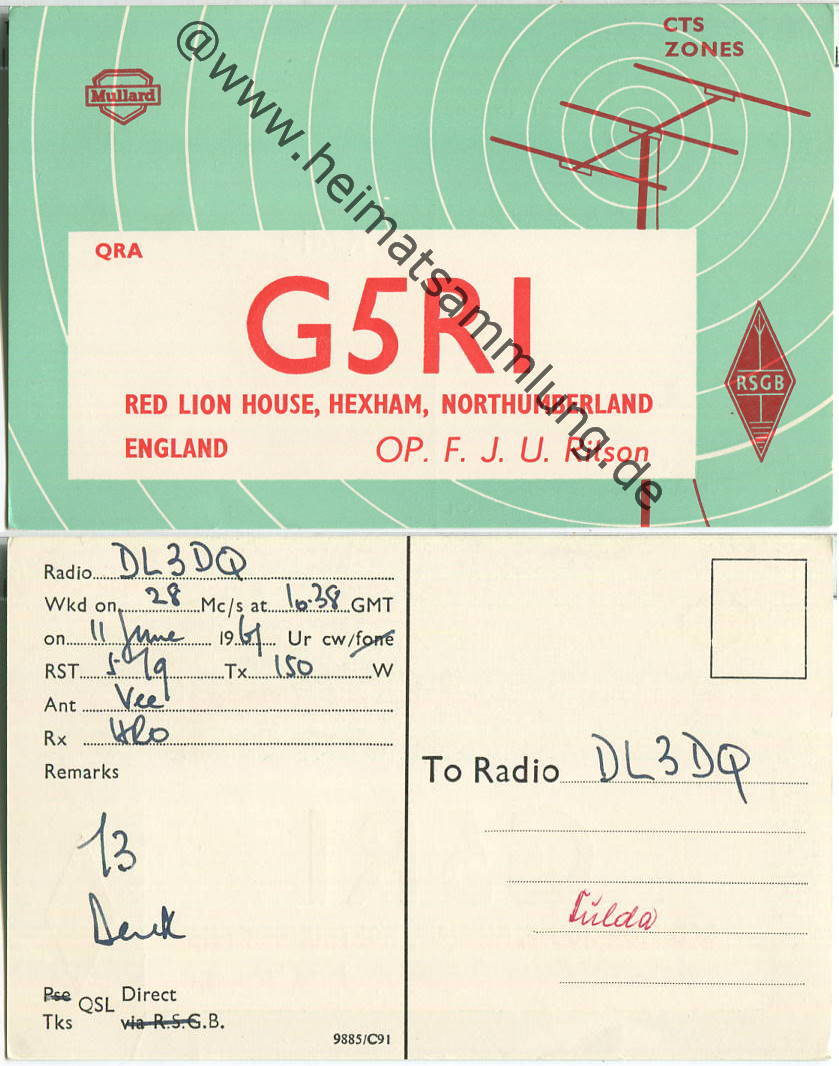 CTS
ZONES
Mullard
@www.heimatsammlung.de
QRA
G5RI
RED LION HOUSE, HEXHAM, NORTHUMBERLAND
ENGLAND OP. F. J. U. Ritson
RSGB
Radio DL3DQ
Wkd on 28 Mc/s at 10.38 GMT
on 11 June 1961 Ur cw/fone
RST 579 Tx 150 W
Ant Vee
Rx HRO
Remarks
73
Derek
Pse QSL Direct
Tks via R.S.G.B.
9885/C91
To Radio DL3DQ
Fulda